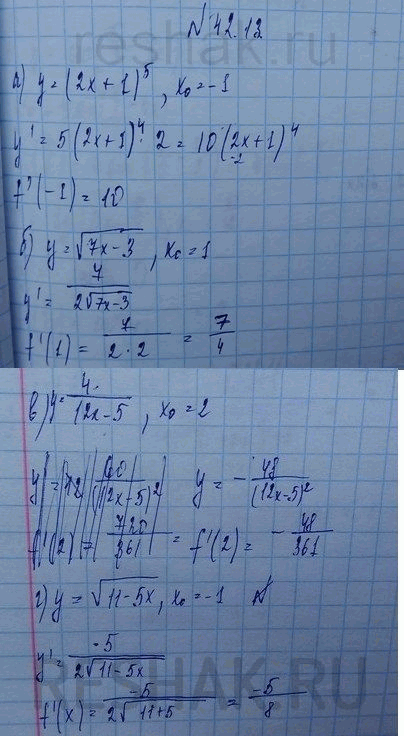 reshak.ru
№ 42.12
а) y = (2x + 1)^5 , x₀ = -1
y' = 5(2x+1)^4 · 2 = 10(2x+1)^4
-2
f'(-1) = 10
б) y = √(7x-3) , x₀ = 1
y' = 7/(2√(7x-3))
f'(1) = 7/(2·2) = 7/4
в) y = 4/(12x-5) , x₀ = 2
y = - 48/(12x-5)²
f'(2) = - 48/361
г) y = √(11-5x) , x₀ = -1
y' = -5/(2√(11-5x))
f'(x) = -5/(2√(11+5)) = -5/8
RESHAK.RU